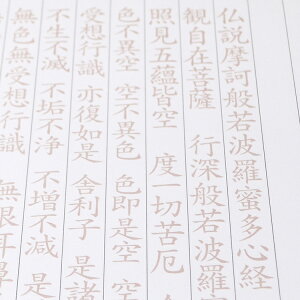 仏説摩訶般若波羅蜜多心経
観自在菩薩 行深般若波羅
照見五蘊皆空 度一切苦厄
色不異空 空不異色 色即是空 空
受想行識 亦復如是 舍利子 是諸
不生不滅 不垢不浄 不増不減 是
無色無受想行識 無眼耳鼻